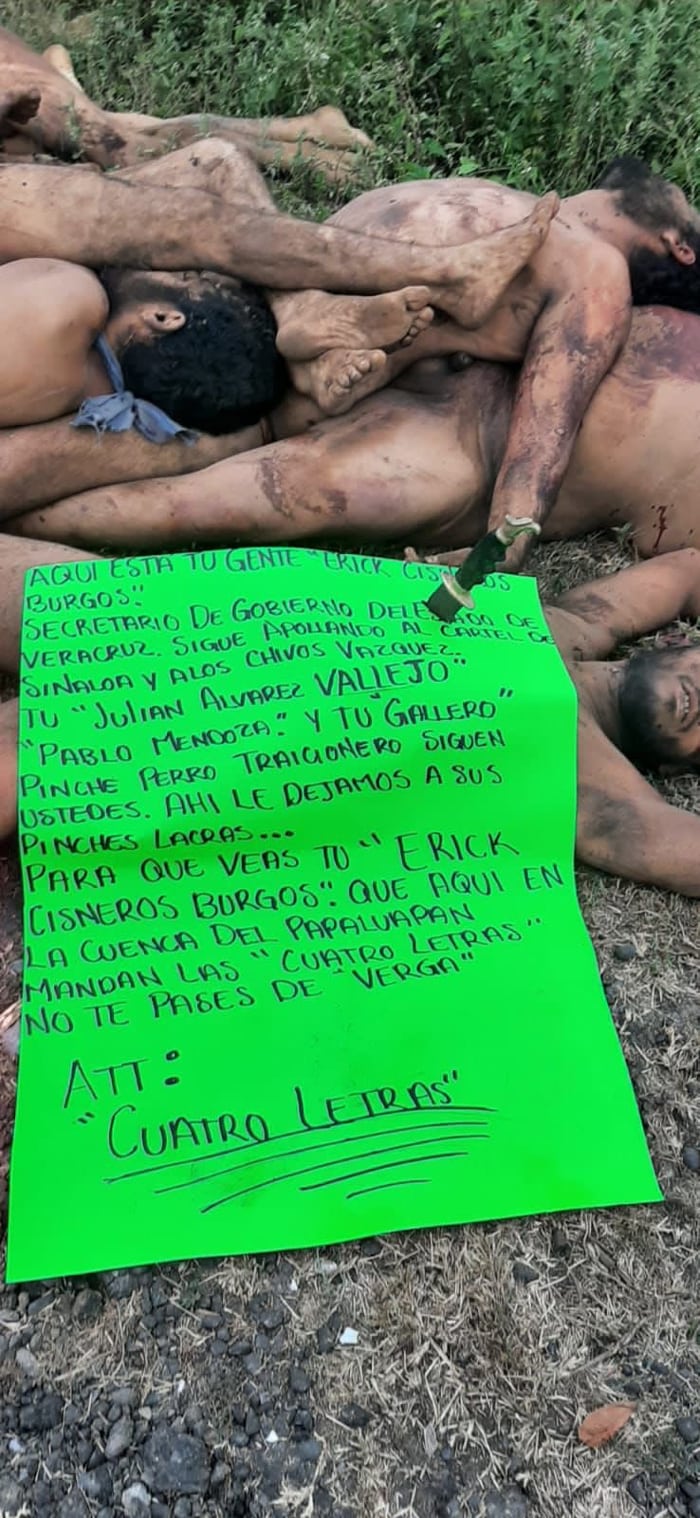 AQUI ESTA TU GENTE "ERICK CISNEROS
BURGOS".
SECRETARIO DE GOBIERNO DEL ESTADO DE
VERACRUZ. SIGUE APOLLANDO AL CARTEL DE
SINALOA Y ALOS CHIVOS VAZQUEZ.
TU "JULIAN ALVAREZ VALLEJO"
"PABLO MENDOZA." Y TU "GALLERO"
PINCHE PERRO TRAICIONERO SIGUEN
USTEDES. AHI LE DEJAMOS A SUS
PINCHES LACRAS...
PARA QUE VEAS TU "ERICK
CISNEROS BURGOS". QUE AQUI EN
LA CUENCA DEL PAPALUAPAN
MANDAN LAS "CUATRO LETRAS"
NO TE PASES DE "VERGA"
ATT:
"CUATRO LETRAS"